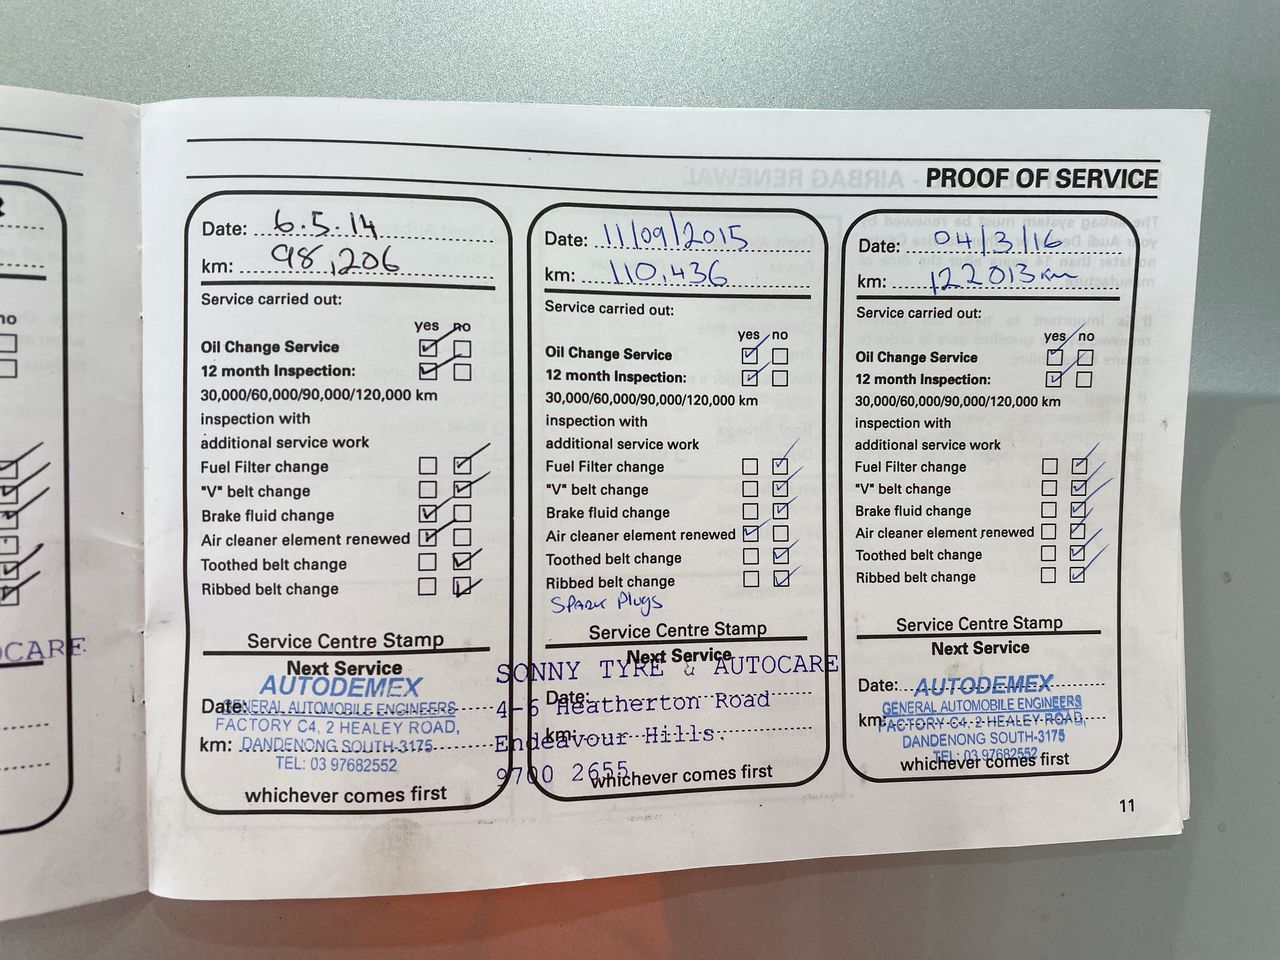 PROOF OF SERVICE
Date: 6.5.14
km: 98,206
Service carried out:
yes no
Oil Change Service
12 month Inspection:
30,000/60,000/90,000/120,000 km
inspection with
additional service work
Fuel Filter change
"V" belt change
Brake fluid change
Air cleaner element renewed
Toothed belt change
Ribbed belt change
Service Centre Stamp
Next Service
AUTODEMEX
Date:
GENERAL AUTOMOBILE ENGINEERS
FACTORY C4, 2 HEALEY ROAD,
km:
DANDENONG SOUTH-3175
TEL: 03 97682552
whichever comes first
Date: 11/09/2015
km: 110,436
Service carried out:
yes no
Oil Change Service
12 month Inspection:
30,000/60,000/90,000/120,000 km
inspection with
additional service work
Fuel Filter change
"V" belt change
Brake fluid change
Air cleaner element renewed
Toothed belt change
Ribbed belt change
SPARK Plugs
Service Centre Stamp
Next Service
SONNY TYRE & AUTOCARE
Date:
4-6 Heatherton Road
km:
Endeavour Hills.
9700 2655
whichever comes first
Date: 04/3/16
km: 122013 km
Service carried out:
yes no
Oil Change Service
12 month Inspection:
30,000/60,000/90,000/120,000 km
inspection with
additional service work
Fuel Filter change
"V" belt change
Brake fluid change
Air cleaner element renewed
Toothed belt change
Ribbed belt change
Service Centre Stamp
Next Service
Date:
AUTODEMEX
GENERAL AUTOMOBILE ENGINEERS
km:
FACTORY C4, 2 HEALEY ROAD,
DANDENONG SOUTH-3175
TEL: 03 97682552
whichever comes first
11